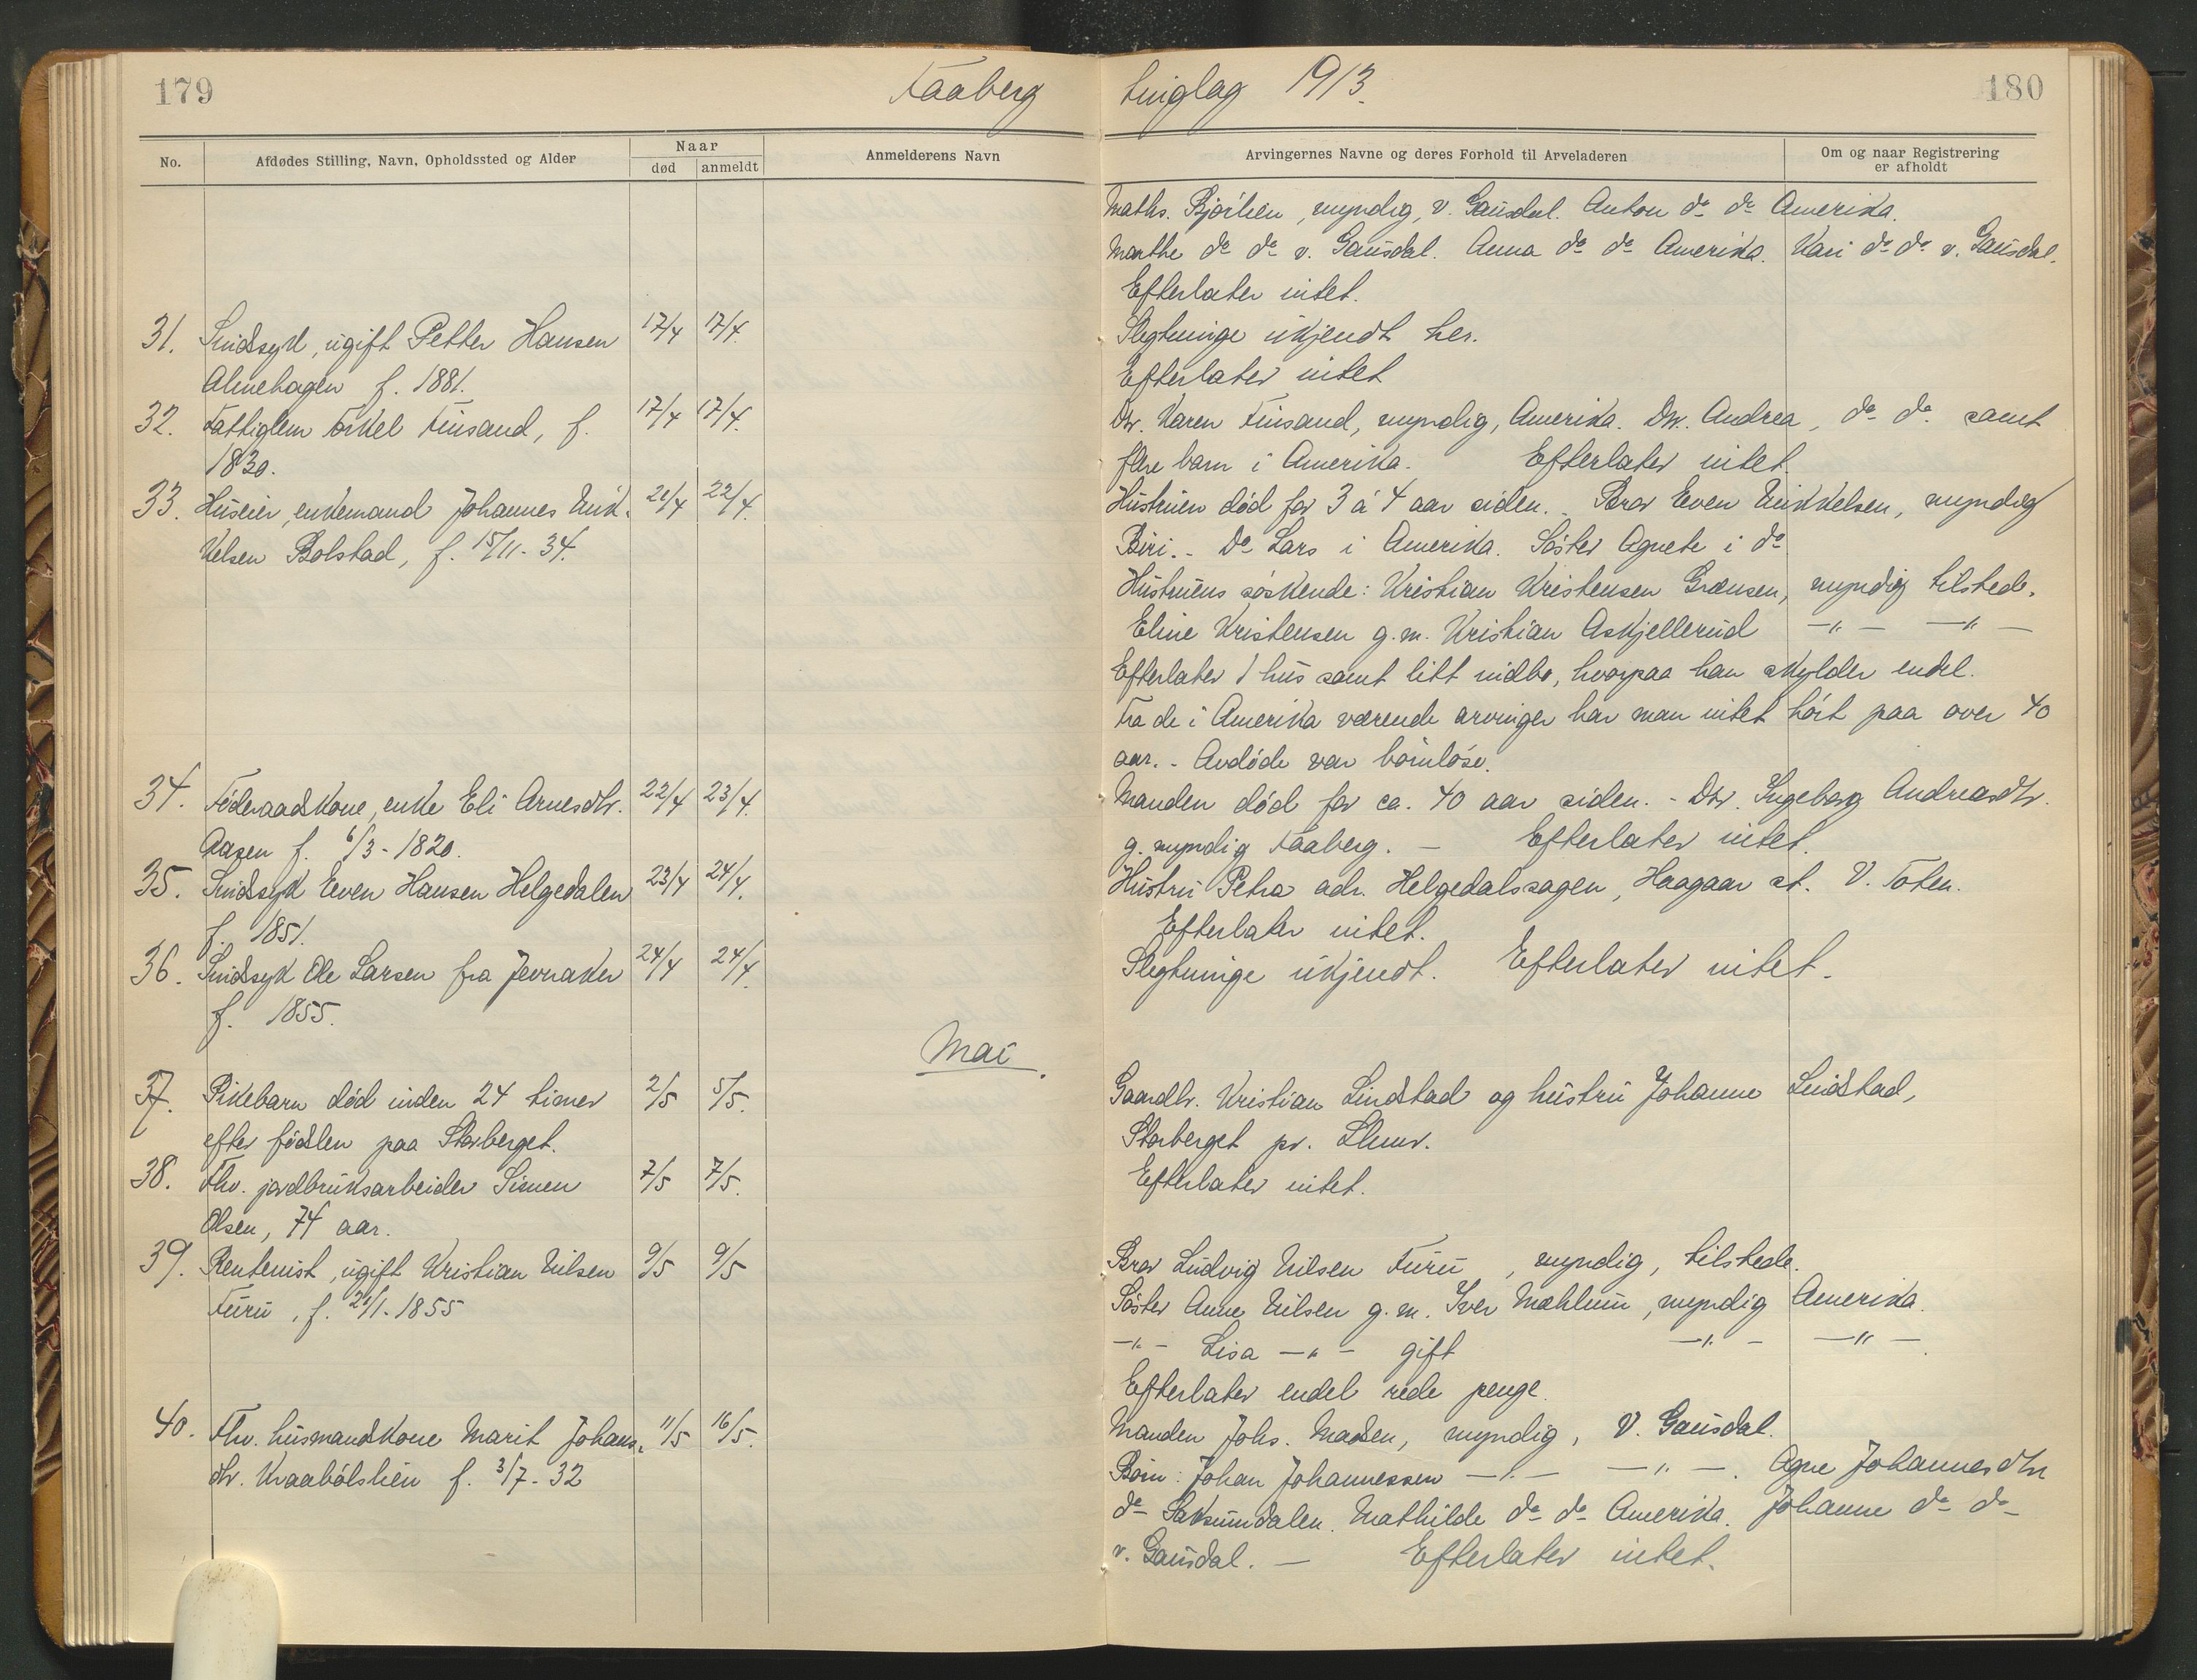 179
Faaberg tinglag 1913.
180
No.
Afdødes Stilling, Navn, Opholdssted og Alder
Naar
død
anmeldt
Anmelderens Navn
Arvingernes Navne og deres Forhold til Arveladeren
Om og naar Registrering
er afholdt
Maths. Bjørlien, myndig, v. Gausdal. Anton do do Amerika.
Marthe do do v. Gausdal. Anna do do Amerika. Kari do do v. Gausdal.
Efterlater intet.
31. Sindssyk, ugift Petter Hansen 17/4 17/4.
Almehagen f. 1881.
Slegtninge ukjendt her.
Efterlater intet
32. Fattiglem Torkel Finsand, f. 17/4 17/4.
1830.
Dtr. Karen Finsand, myndig, Amerika. Dtr. Andrea, do do. samt
flere barn i Amerika. Efterlater intet.
33. Huseier, enkemand Johannes Erik- 21/4 22/4.
kelsen Bolstad, f. 15/11-34.
Hustruen død for 3 á 4 aar siden. - Bror Even Erikkelsen, myndig
Biri. - Do Lars i Amerika. Søster Agnete i do
Hustruens søskende: Kristian Kristensen Grænsen, myndig tilstede.
Eline Kristensen g.m. Kristian Askjellerud -"- -"-
Efterlater 1 hus samt litt indbo, hvorpaa han skylder endel.
Fra de i Amerika værende arvinger har man intet hørt paa over 40
aar. - Avdøde var barnløse.
34. Føderaadskone, enke Eli Arnesdtr. 22/4 23/4.
Aasen f. 6/3-1820.
Manden død for ca. 40 aar siden. - Dtr. Ingeborg Andreasdtr.
g. myndig Faaberg. - Efterlater intet.
35. Sindssyk Even Hansen Helgedalen 23/4 24/4.
f. 1851.
Hustru Petra adr. Helgedalssagen, Haagaar st. V. Toten.
Efterlater intet.
36. Sindssyk Ole Larsen fra Jevnaker 24/4 24/4.
f. 1855.
Slegtninge ukjendt. Efterlater intet.
Mai.
37. Pikebarn død inden 24 timer 2/5 5/5.
efter fødslen paa Storberget.
Gaardbr. Kristian Lindstad og hustru Johanne Lindstad,
Storberget pr. Lhmr.
38. Fhv. jordbruksarbeider Simen 7/5 7/5.
Olsen, 74 aar.
Efterlater intet.
39. Rentenist, ugift Kristian Nilsen 9/5 9/5
Furu, f. 21/1-1855
Bror Ludvig Nilsen Furu, myndig, tilstede.
Søster Anne Nilsen g.m. Iver Mæhlum, myndig Amerika.
-"- Lisa -"- gift -"- -"-.
Efterlater endel rede penge.
40. Fhv. husmandskone Marit Johans- 11/5 16/5.
dtr. Kraabølslien f. 3/7-32
Manden Johs. Madsen, myndig, V. Gausdal.
Børn: Johan Johannessen -"- -"-. Agne Johannesdtr
do Saksumdalen. Mathilde do do Amerika. Johanne do do
v. Gausdal. - Efterlater intet.